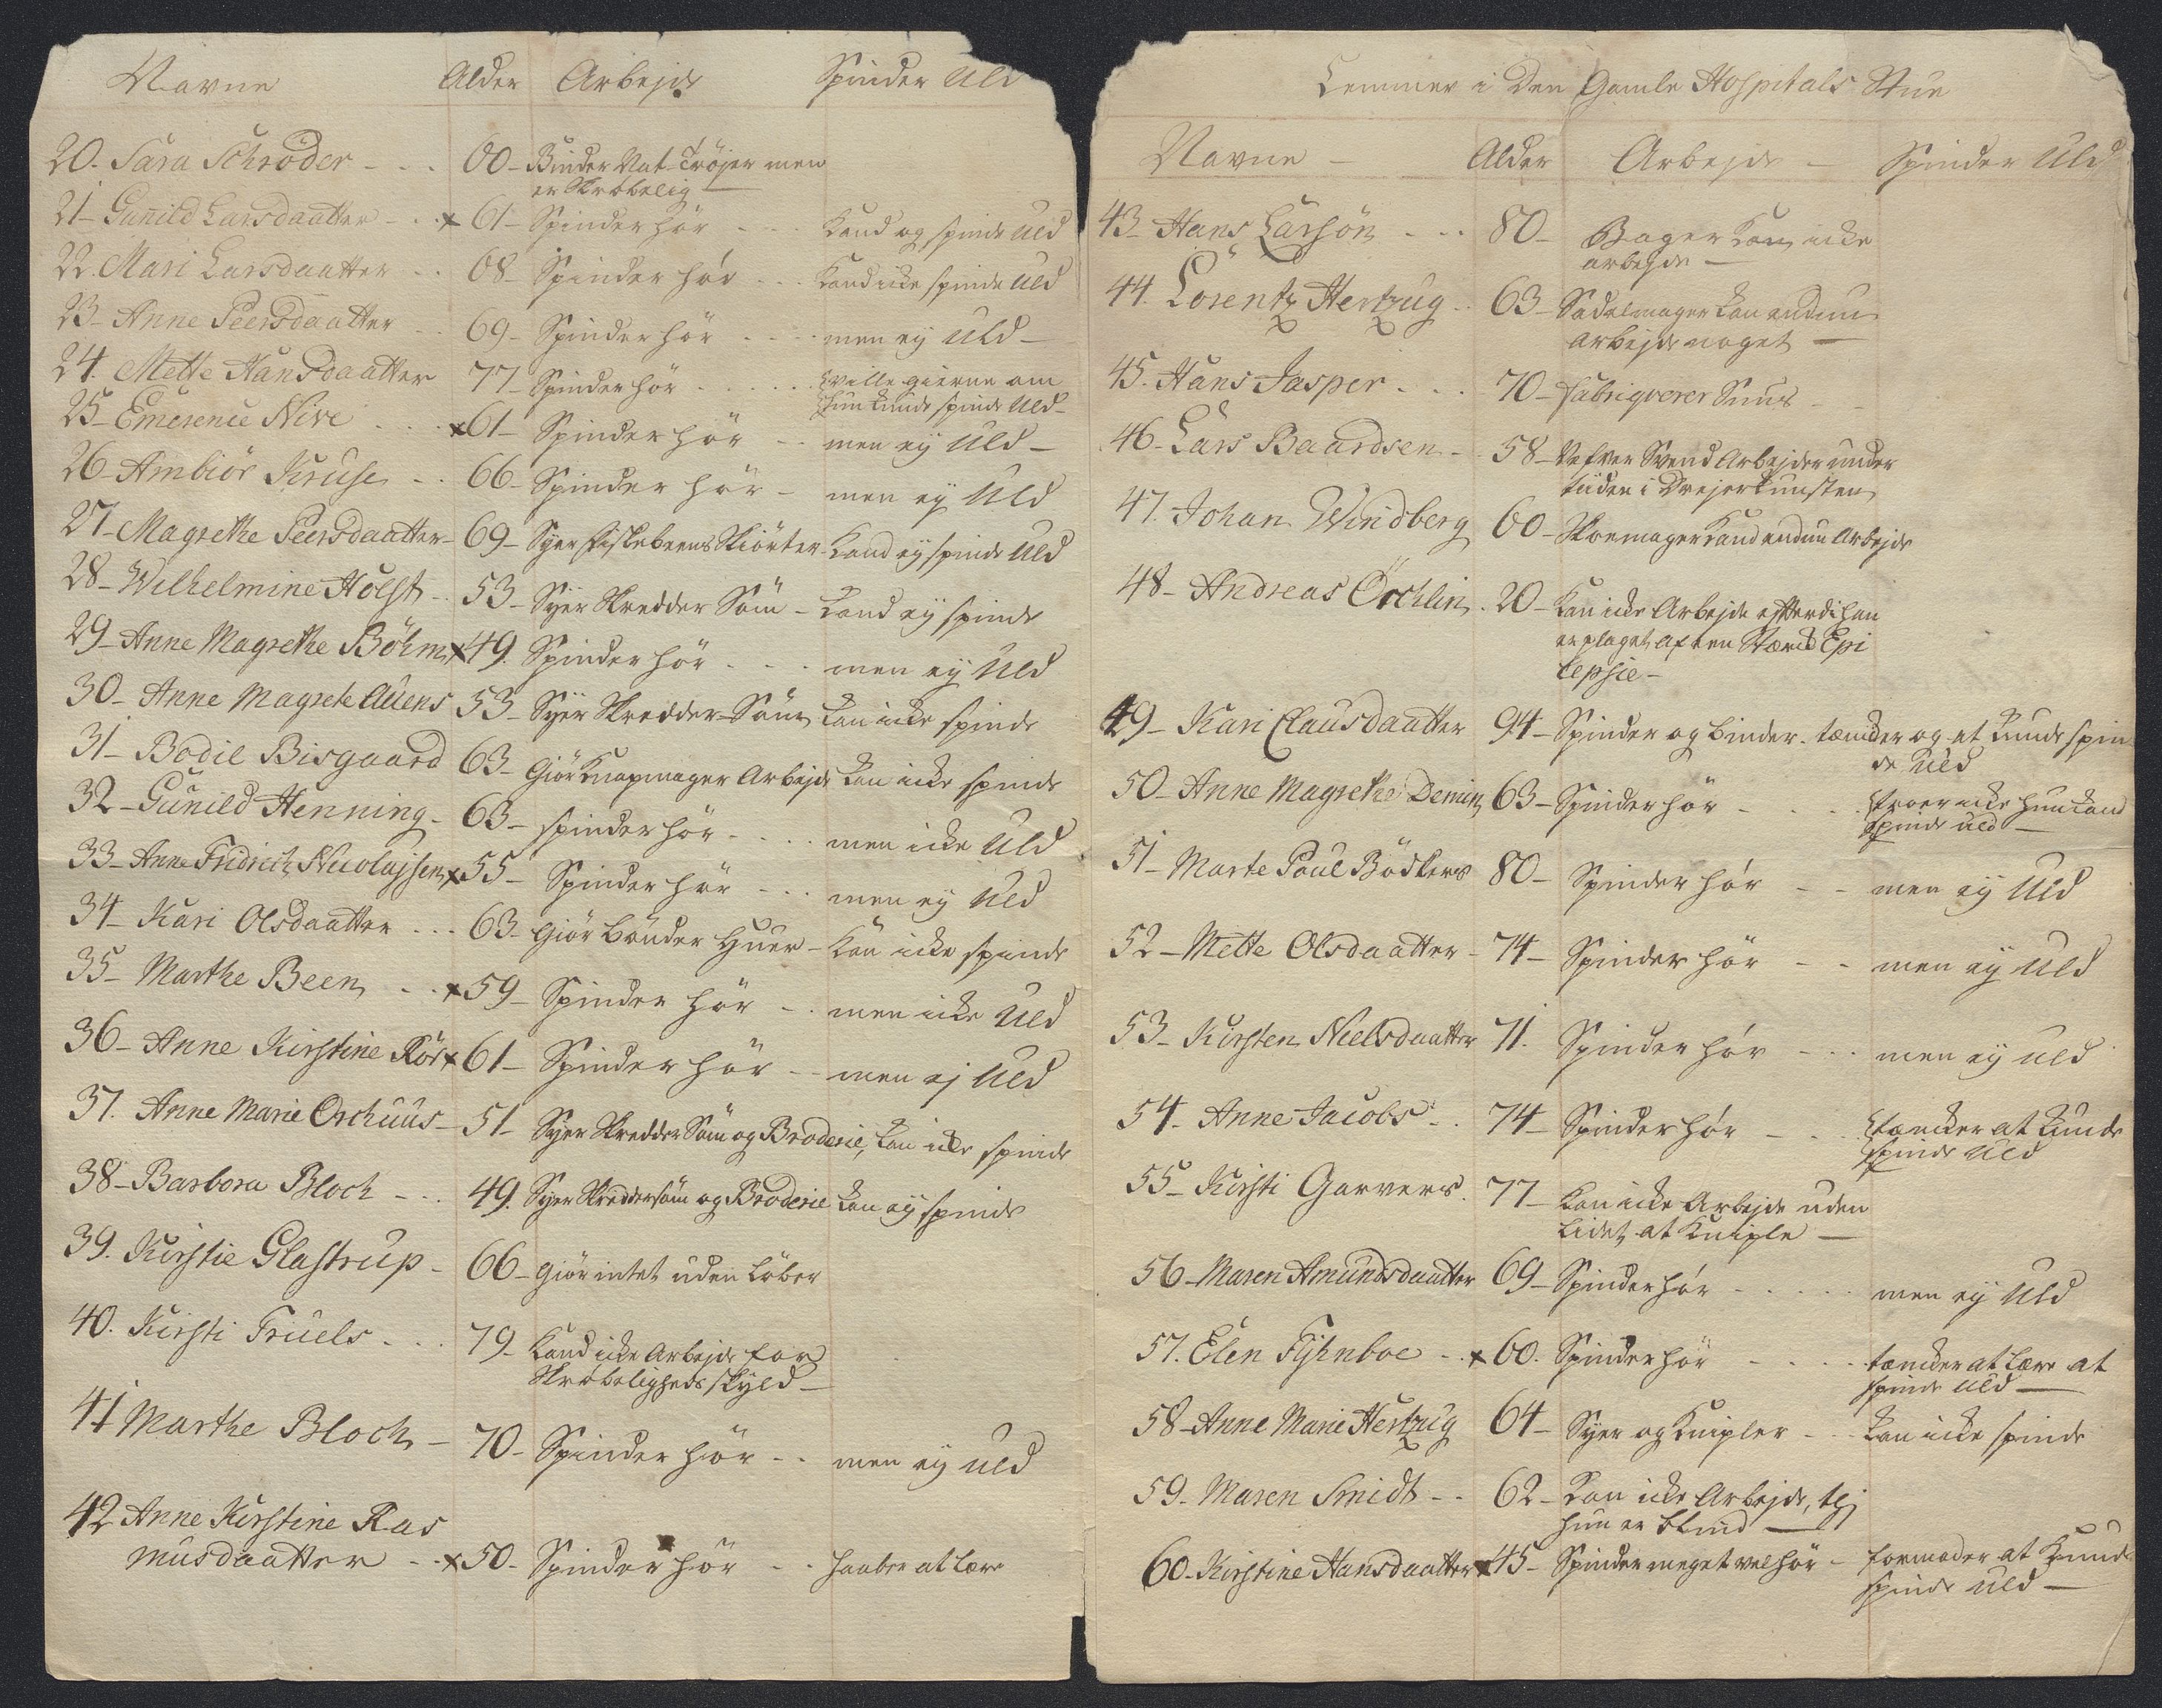 Navne Alder Arbejde Spinder Uld
20. Sara Schrøder - - . 60 - Binder Nat-Trøjer men
er Skrøbelig -
21 - Gunild Larsdaatter - . x 61 - Spinder hør - - - Kand og spinde Uld
22. Mari Larsdaatter - . 68 - Spinder hør - - . Kand icke spinde Uld
23 - Anne Peersdaatter - . 69 - Spinder hør - - - men ey Uld -
24. Mette Hansdaatter 77 - Spinder hør - - - - Ville gierne om
hun kunde spinde Uld -
25 - Emerence Nive - - . x 61 - Spinder hør - - men ey Uld -
26 - Ambiør Kruse - . 66 - Spinder hør - men ey Uld
27 - Magrethe Peersdaatter - 69 - Syer Fiskebeens Skiörter - Kand ey spinde Uld
28 - Wilhelmine Holst - . 53 - Syer Skredder Søm - Kand ey spinde
29 - Anne Magrethe Böhm x 49. Spinder hør - - - men ey Uld
30 - Anne Magrete Auens 53 - Syer Skredder-Söm, Kan icke spinde
31 - Bodil Bisgaard 63 - Giör Knapmager Arbejde Kan icke spinde
32 - Gunild Henning - 63 - spinder hør - - . men icke Uld
33 - Anne Fridrich Nicolajsen x 55 - Spinder hør - - . men ey Uld
34 - Kari Olsdaatter - - . 63 - Giör bönder Huer - Kan icke spinde
35 - Marthe Been - . x 59 - Spinder hör - . men icke Uld
36 - Anne Kirstine Rör x 61 - Spinder hør - - men ej Uld
37. Anne Marie Orchuus - 51 - Syer Skredder Söm og Broderie, kan icke spinde
38 - Barbora Bloch - - . 49. Syer Skreddersöm og Broderie kan ey spinde
39. Kirstie Glastrup - 66 - Giör intet uden Löber
40. Kirsti Truels - - . 79 - Kand icke Arbejde for
Skrøbeligheds skyld -
41 Marthe Bloch - 70 - Spinder hør - - men ey Uld
42 Anne Kirstine Ras
musdaatter - - x 50 - Spinder hør - - haaber at lære
Lemmer i Den Gamle Hospitals Stue
Navne - Alder Arbejde - Spinder Uld
43 - Hans Larsön - - . 80 - Bager kan icke
arbejde -
44. Lorentz Hertzug - . 63 - Sadelmager kan endnu
Arbejde noget -
45. Hans Jasper - - . 70 - fabriqverer Snuus - -
46 - Lars Baardsen - . 58 - Væfver Svend Arbejder under
tiiden i Drejerkunsten
47. Johan Windberg 60 - Skoemager Kand endnu Arbejde
48 - Andreas Örchlin . 20 - Kan icke Arbejde efterdi han
er plaget af een Stærck Epi
lepsie -
49 - Kari Clausdaatter 94 - Spinder og binder - tæncker og at kunde spin
de Uld
50 - Anne Magrethe Demin 63 - Spinder hør - - - troer icke hun kand
spinde uld -
51 - Marte Poul Bödkers 80 - Spinder hör - - men ey Uld
52 - Mette Olsdaatter - 74 - Spinder hør - - men ey Uld
53 - Kirsten Nielsdaatter 71. Spinder hör - - . men ey uld
54 - Anne Jacobs - . 74 - Spinder hör - - . tæncker at kunde
spinde Uld
55 - Kirsti Garvers . 77 - Kan icke Arbejde uden
lidet at Kniple -
56 - Maren Amundsdaatter 69 - Spinder hör - - - - men ey Uld
57. Elen Fyhnboe - . x 60. Spinder hör - - - - tæncker at lære at
spinde uld -
58 - Anne Marie Hertzug 64 - Syer og Knipler - - kan icke spinde
59 - Maren Smidt - - 62 - Kan icke Arbejde, thj
hun er blind -
60 - Kirstine Hansdaatter x 45 - Spinder meget vel hör - formoder at kunde
spinde uld -